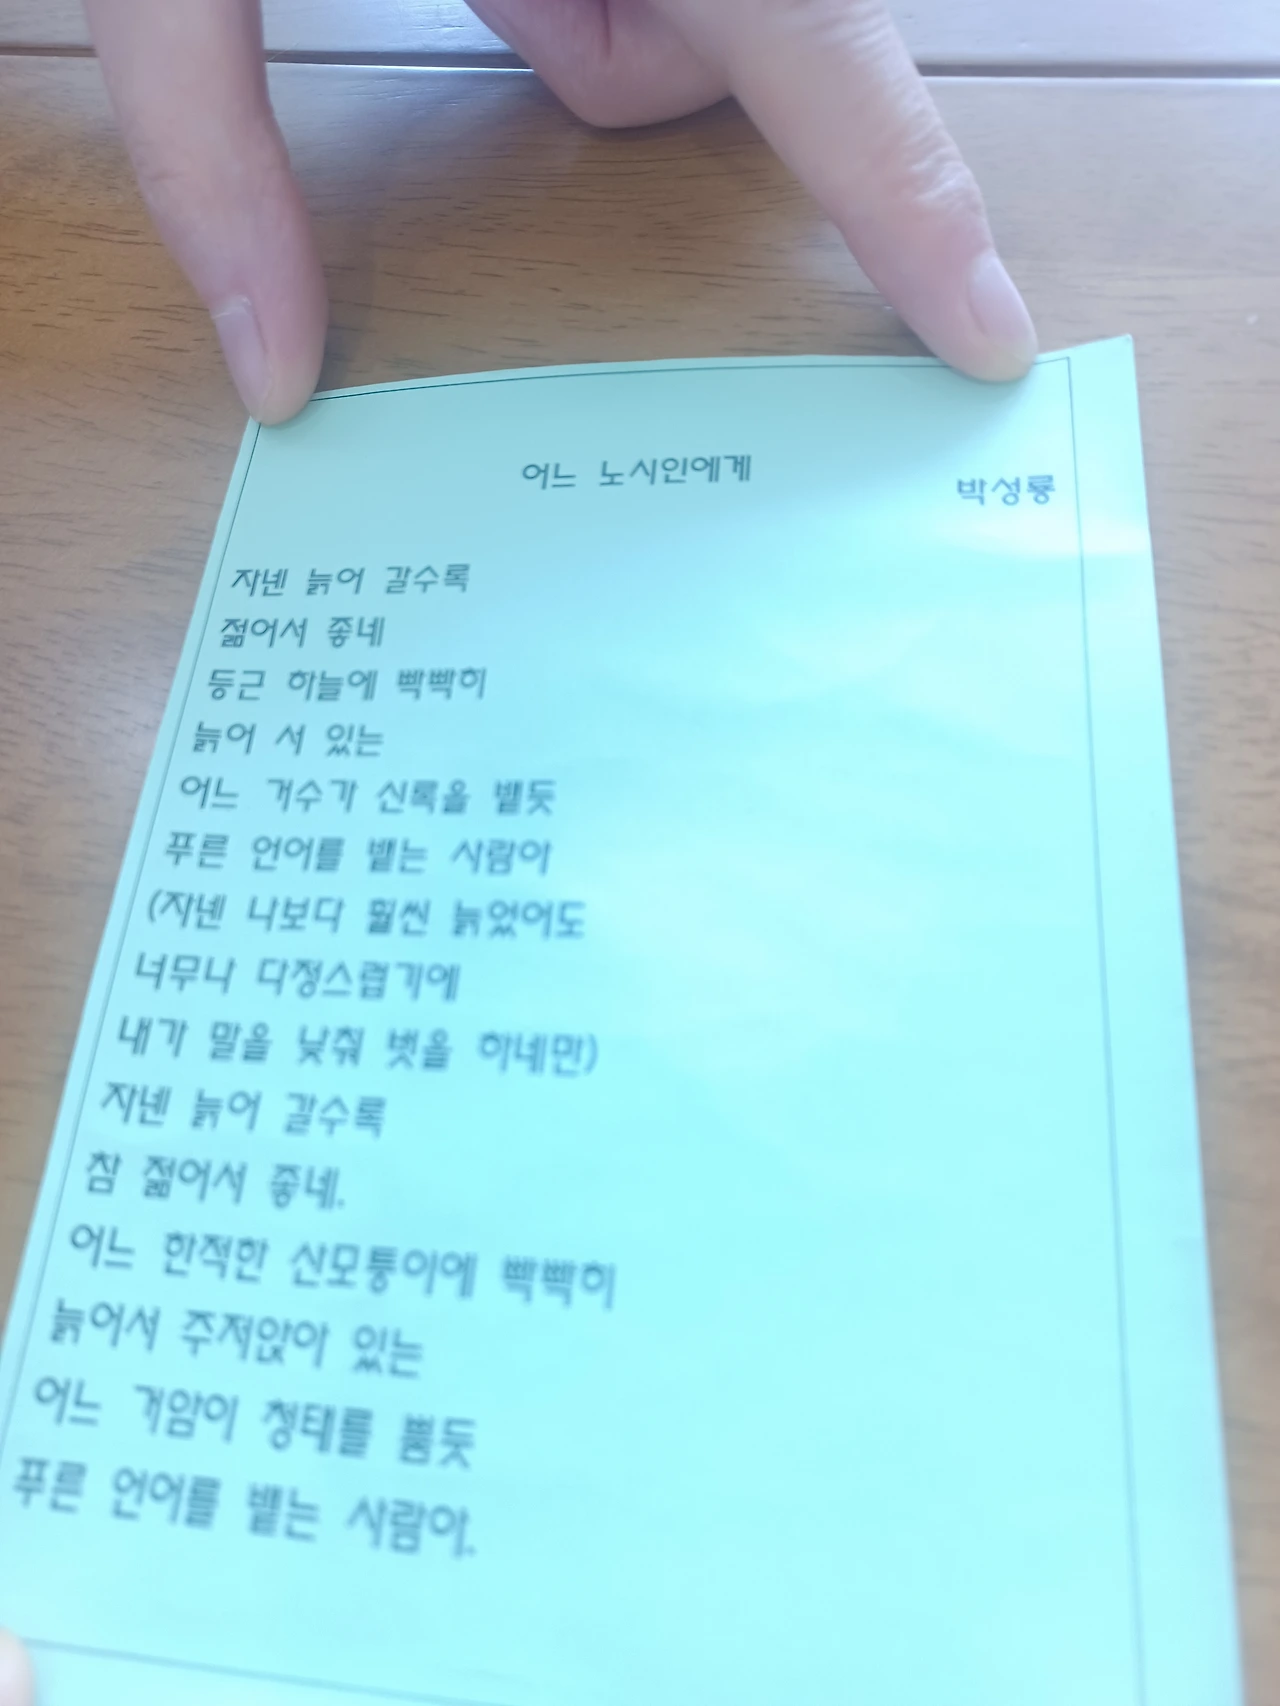 어느 노시인에게
박성룡
자넨 늙어 갈수록
젊어서 좋네
둥근 하늘에 빡빡히
늙어 서 있는
어느 거수가 신록을 뱉듯
푸른 언어를 뱉는 사람아
(자넨 나보다 훨씬 늙었어도
너무나 다정스럽기에
내가 말을 낮춰 벗을 하네만)
자넨 늙어 갈수록
참 젊어서 좋네.
어느 한적한 산모퉁이에 빡빡히
늙어서 주저앉아 있는
어느 거암이 청태를 뿜듯
푸른 언어를 뱉는 사람아.